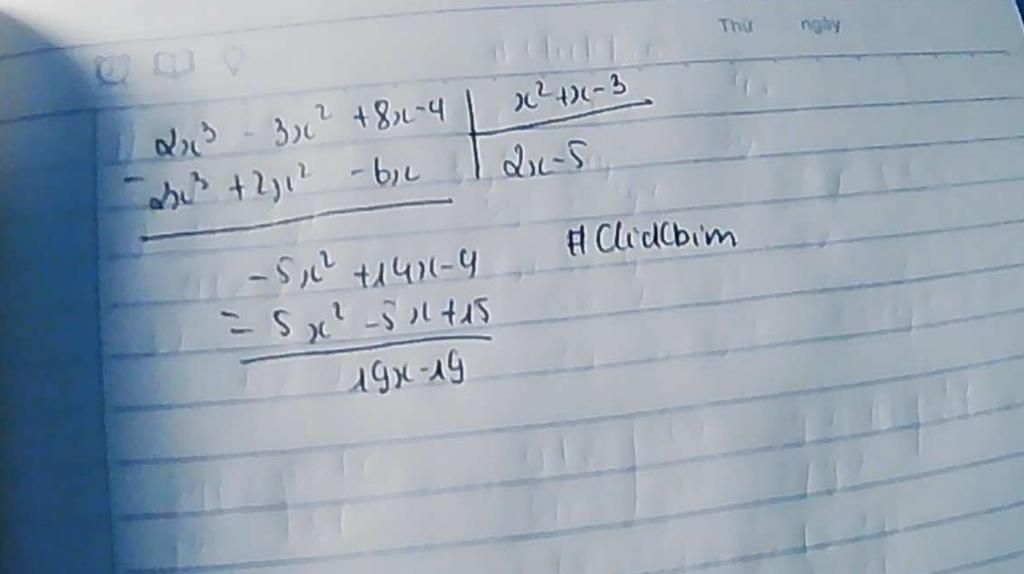 Thứ ngày
2x³ - 3x² + 8x - 4 | x² + x - 3
- 2x³ + 2x² - 6x | 2x - 5
- 5x² + 14x - 4
= 5x² - 5x + 15
19x - 19
#Clidcbim